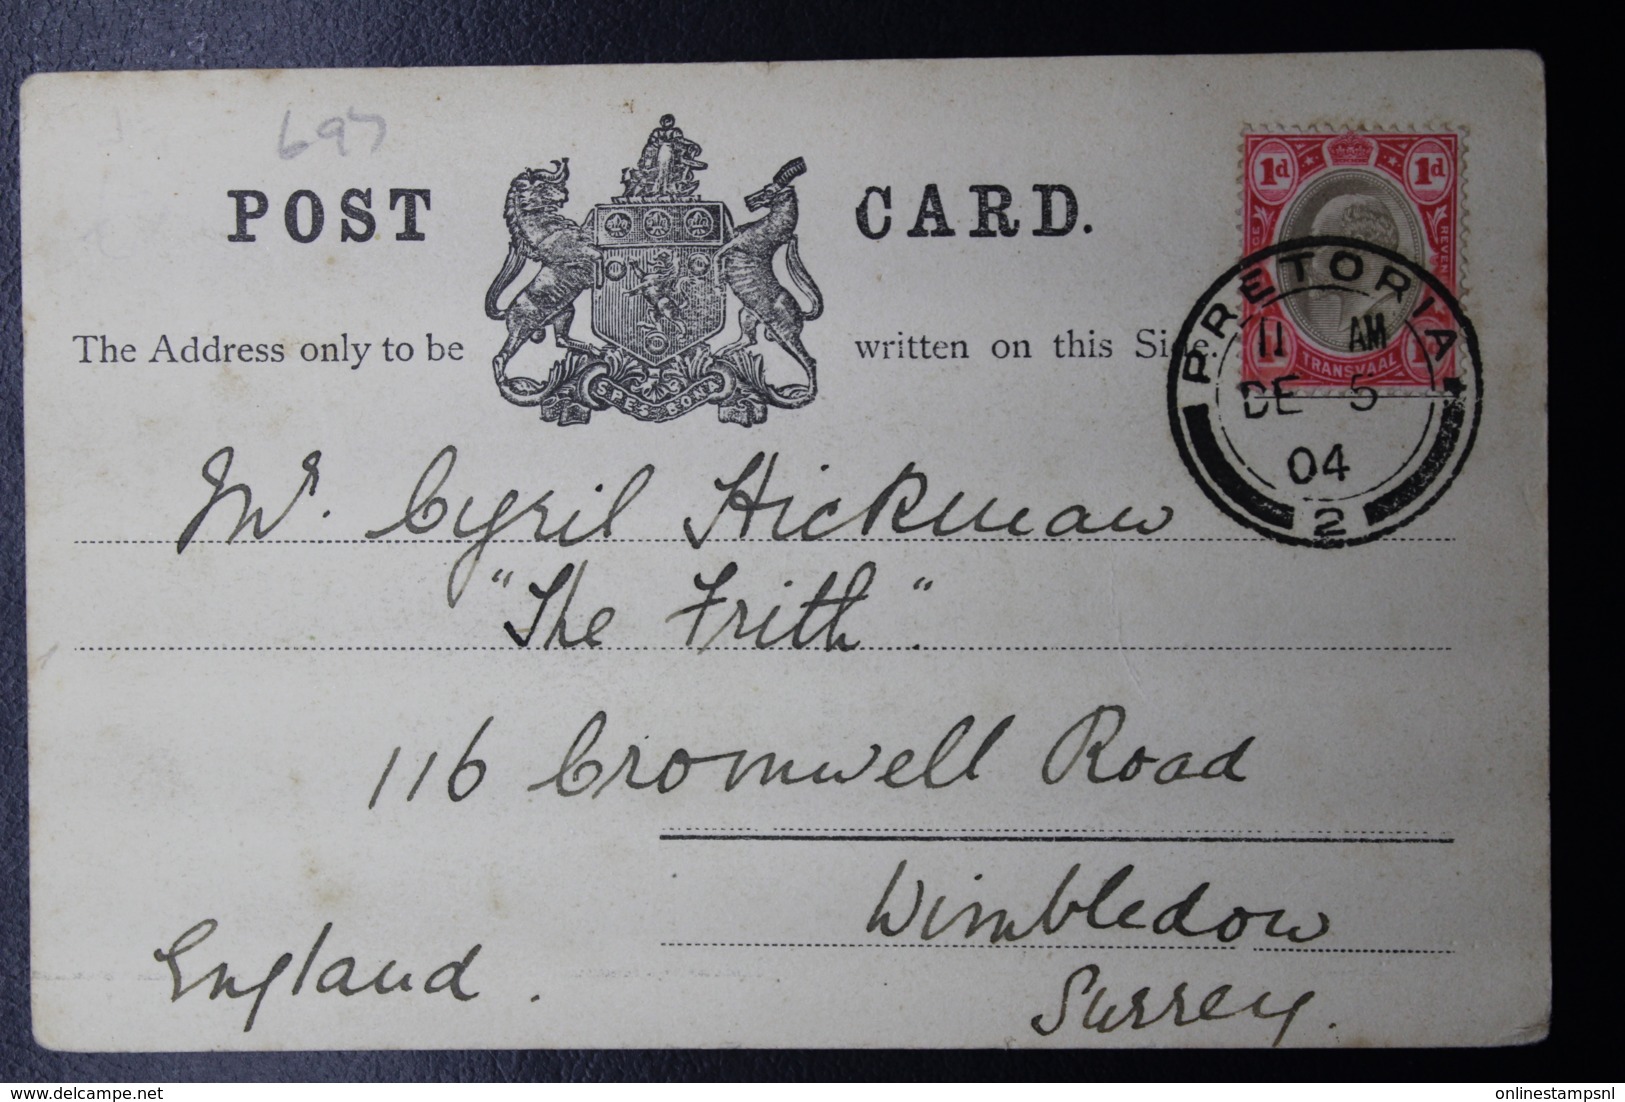 697
POST CARD.
The Address only to be written on this Side.
SPES BONA
1d 1d
REVENUE
TRANSVAAL
PRETORIA
11 AM
DE 5
04
2
Mr. Cyril Hickman
"The Frith".
116 Cromwell Road
Wimbledon
Surrey.
England.
onlinestampsnl